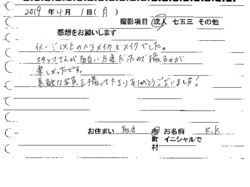 2019年4月1日(月)
撮影項目 成人 七五三 その他
感想をお願いします
イメージ以上のヘアメイクとメイクでした。
スタッフさんが面白い方達だったので撮るのが
楽しかったです。
素敵な写真を撮って下さりありがとうございました!
お住まい 町 村 お名前 K.K
イニシャルで